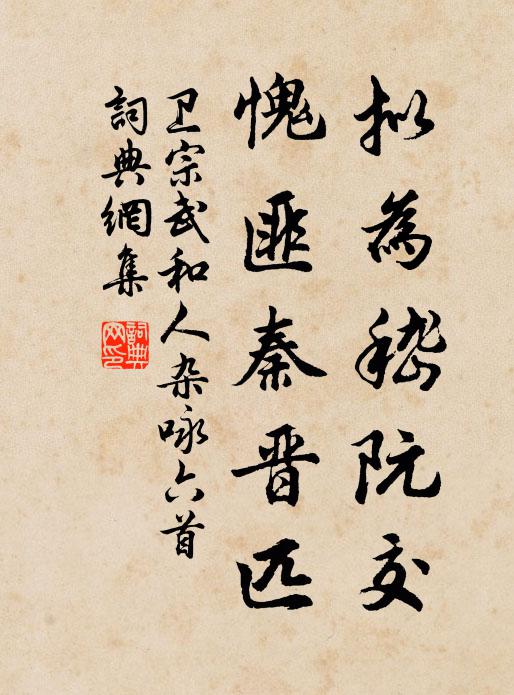 拟為嵇阮交
愧匪秦晋匹
卫宗武和人杂咏六首
詞典網集
詞典网印